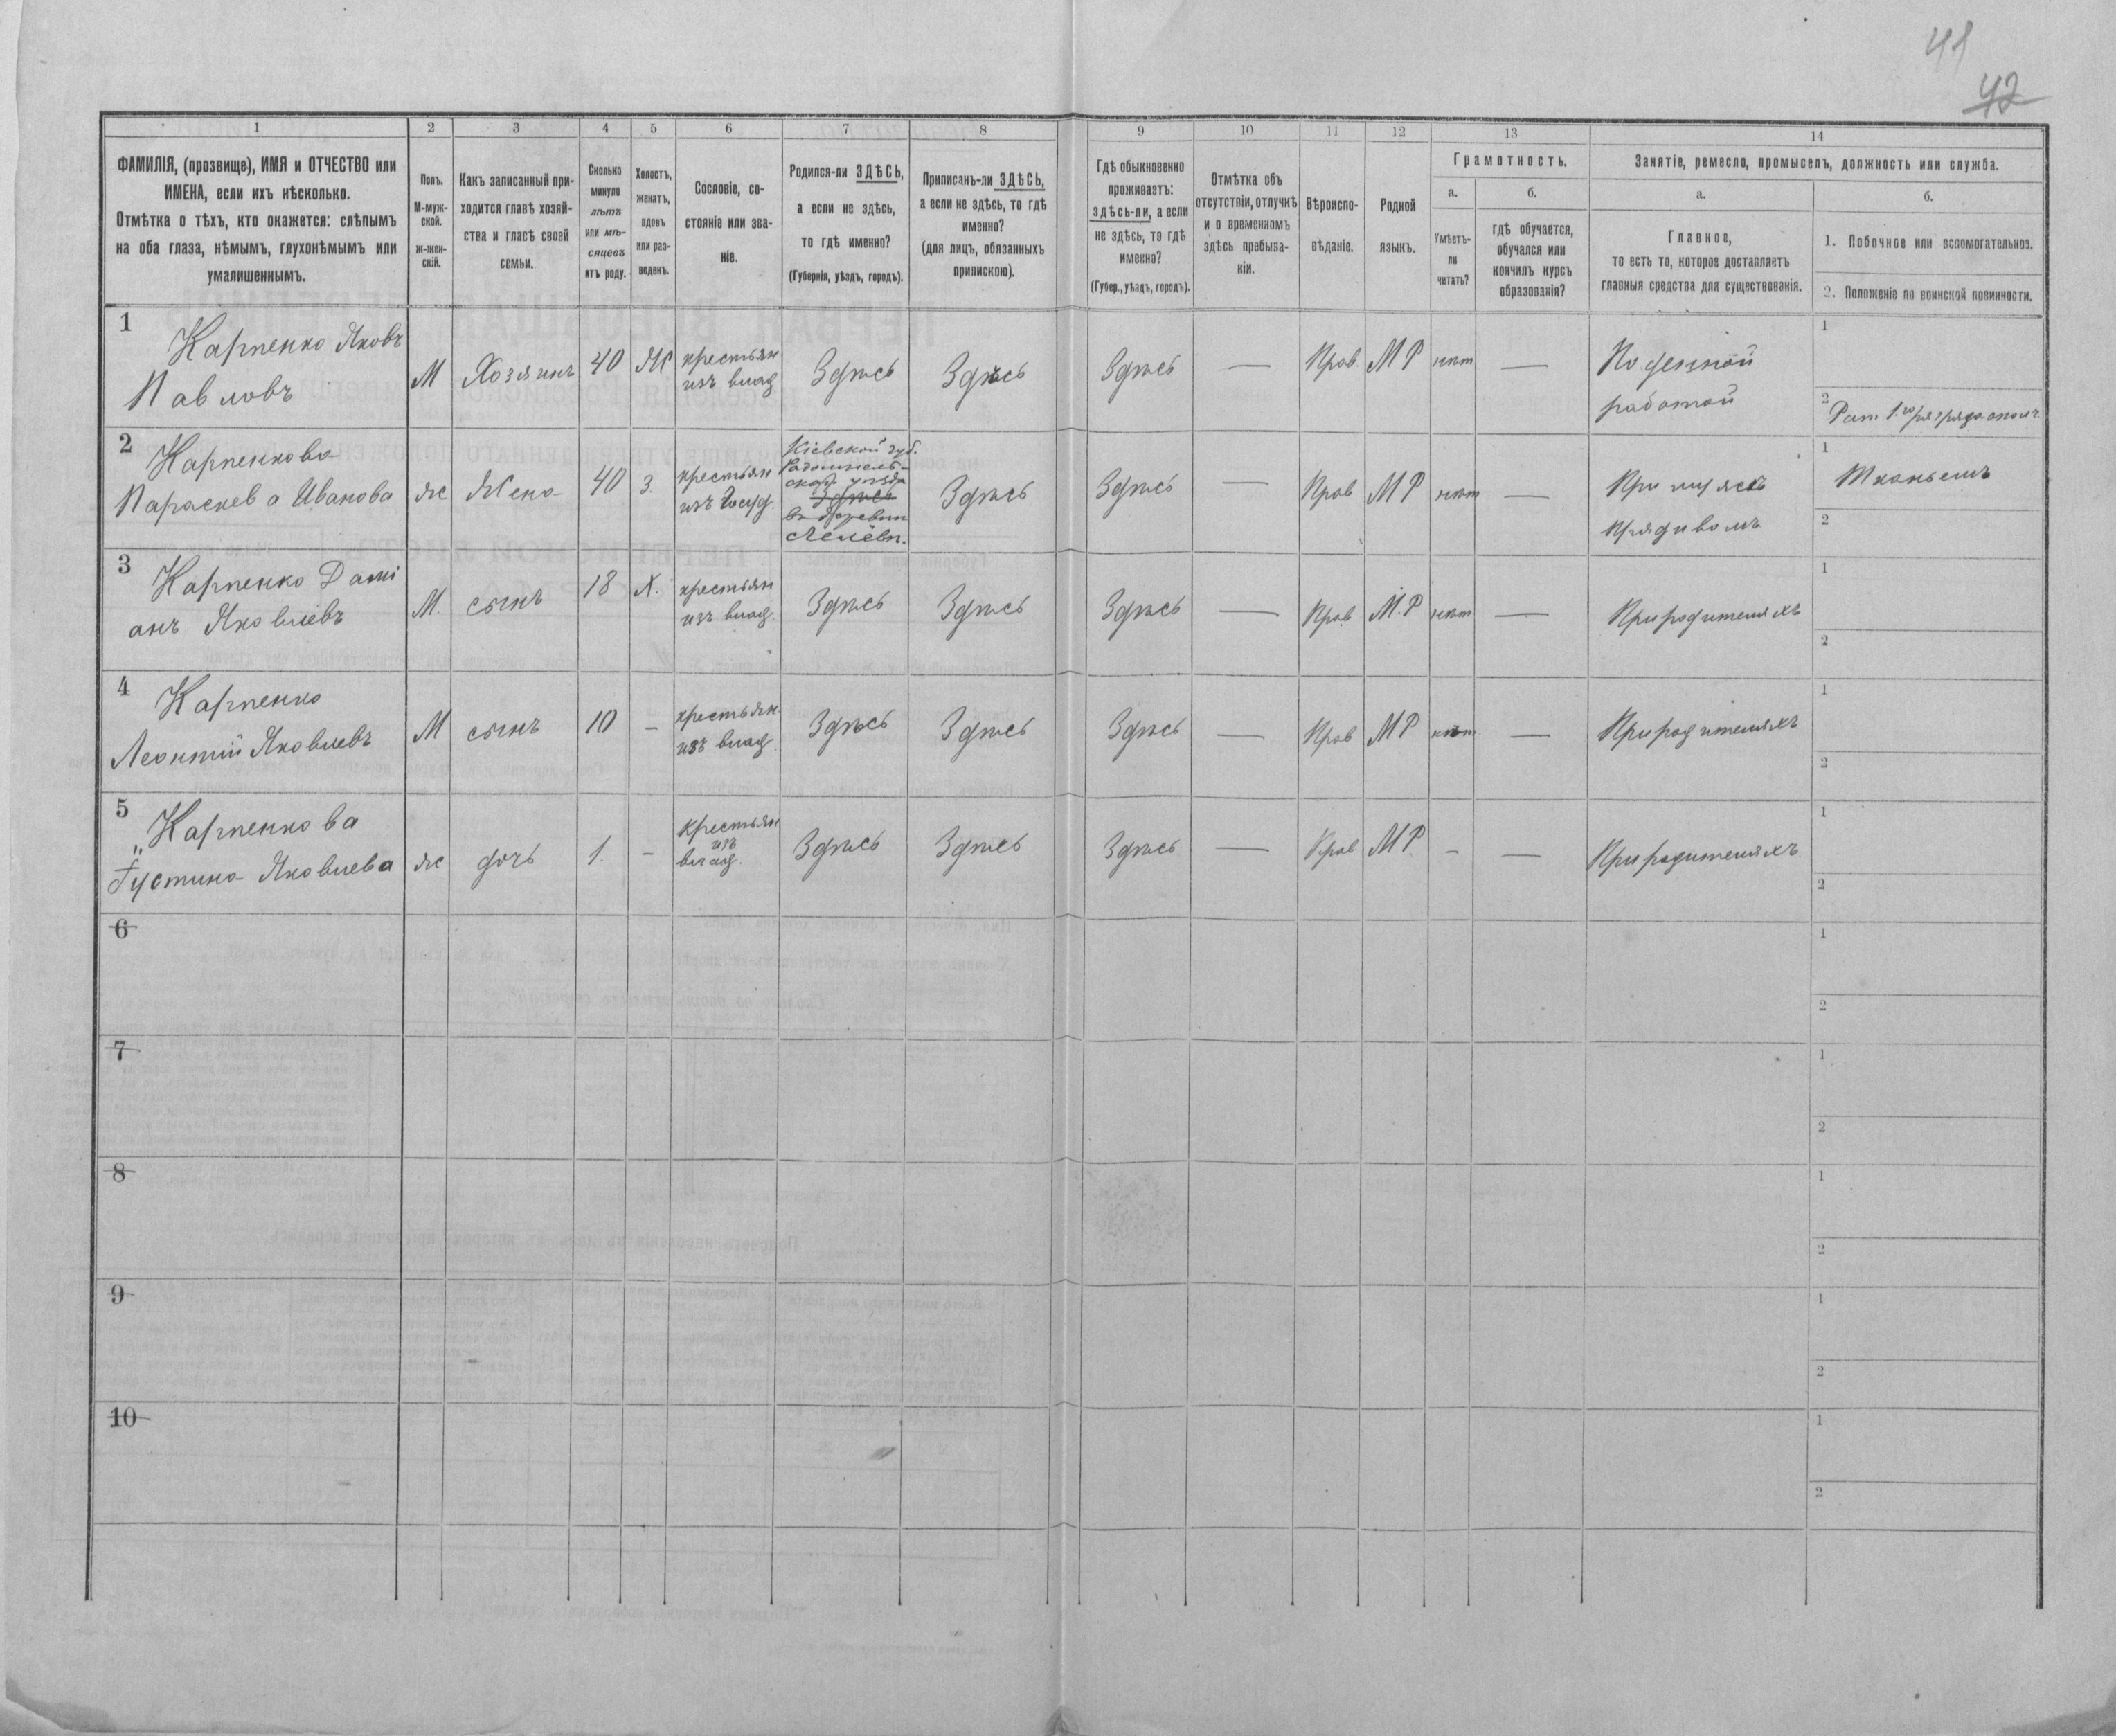 41
42
1
2
3
4
5
6
7
8
9
10
11
12
13
14
ФАМИЛІЯ, (прозвище), ИМЯ и ОТЧЕСТВО или
ИМЕНА, если ихъ нѣсколько.
Отмѣтка о тѣхъ, кто окажется: слѣпымъ
на оба глаза, нѣмымъ, глухонѣмымъ или
умалишеннымъ.
Полъ.
М-муж-
ской.
ж-жен-
скій.
Какъ записанный при-
ходится главѣ хозяй-
ства и главѣ своей
семьи.
Сколько
минуло
лѣтъ
или мѣ-
сяцевъ
отъ роду.
Холостъ,
женатъ,
вдовъ
или раз-
веденъ.
Сословіе, со-
стояніе или зва-
ніе.
Родился-ли ЗДѢСЬ,
а если не здѣсь,
то гдѣ именно?
(Губернія, уѣздъ, городъ).
Приписанъ-ли ЗДѢСЬ,
а если не здѣсь, то гдѣ
именно?
(для лицъ, обязанныхъ
припискою).
Гдѣ обыкновенно
проживаетъ:
здѣсь-ли, а если
не здѣсь, то гдѣ
именно?
(Губер., уѣздъ, городъ).
Отмѣтка объ
отсутствіи, отлучкѣ
и о временномъ
здѣсь пребыва-
ніи.
Вѣроиспо-
вѣданіе.
Родной
языкъ.
Грамотность.
а.
б.
Умѣетъ-
ли
читать?
гдѣ обучается,
обучался или
кончилъ курсъ
образованія?
Занятіе, ремесло, промыселъ, должность или служба.
а.
б.
Главное,
то есть то, которое доставляетъ
главныя средства для существованія.
1. Побочное или вспомогательное.
2. Положеніе по воинской повинности.
1
Карпенко Яковъ
Павловъ
М
Хозяинъ
40
Ж
крестьян
изъ влад
Здѣсь
Здѣсь
Здѣсь
—
Прав.
МР
нѣт
—
Поденной
работой
1
2
Рат. 1го разряда ополч.
2
Карпенкова
Параскева Иванова
ж
Жена
40
З.
крестьян
изъ Госуд.
Кіевской губ.
Радомысль-
скаго уѣзда
Здѣсь
въ деревни
Здѣсь
Здѣсь
—
Прав
МР
нѣт
—
При мужѣ
Прядивомъ
1
Тканьемъ
2
3
Карпенко Дамі
анъ Яковлевъ
М.
сынъ
18
Х.
крестьян
изъ влад.
Здѣсь
Здѣсь
Здѣсь
—
Прав
М.Р
нѣт
—
При родителяхъ
1
2
4
Карпенко
Леонтій Яковлевъ
М
сынъ
10
–
крестьян.
изъ влад.
Здѣсь
Здѣсь
Здѣсь
—
Прав
МР
нѣт
—
При родителяхъ
1
2
5
Карпенкова
Густина Яковлева
ж
дочь
1.
–
крестьян
изъ
влад.
Здѣсь
Здѣсь
Здѣсь
—
Прав
МР
–
—
При родителяхъ
1
2
6
1
2
7
1
2
8
1
2
9
1
2
10
1
2